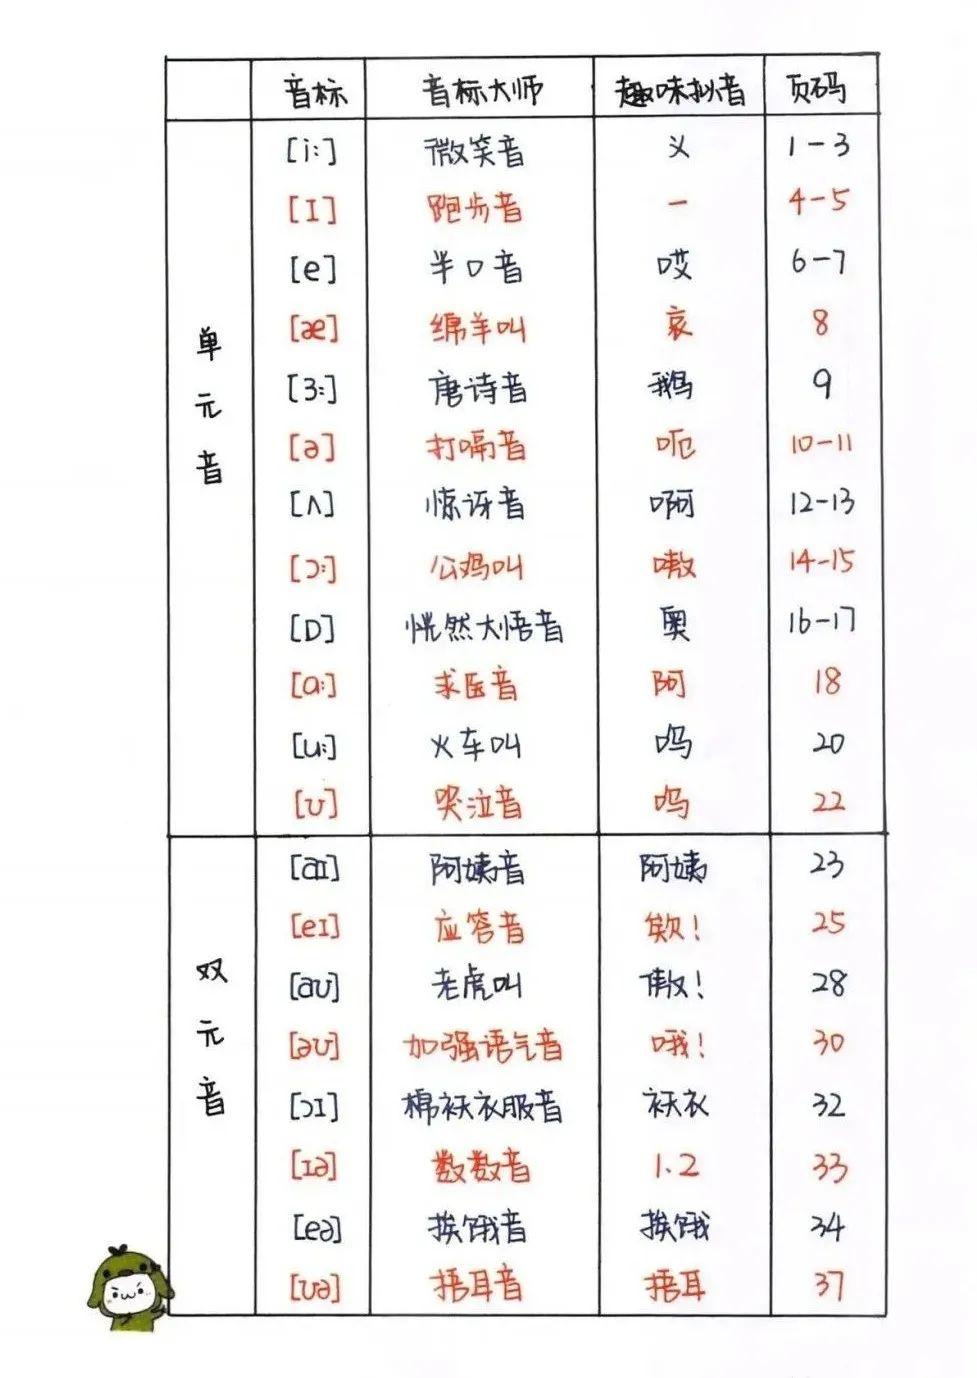 音标 音标大师 趣味拟音 页码
[i:] 微笑音 义 1-3
[I] 跑步音 一 4-5
[e] 半口音 哎 6-7
[æ] 绵羊叫 哀 8
单元音
[ɜ:] 唐诗音 鹅 9
[ə] 打嗝音 呃 10-11
[ʌ] 惊讶音 啊 12-13
[ɔ:] 公鸡叫 嗷 14-15
[ɒ] 恍然大悟音 奥 16-17
[ɑ:] 求医音 阿 18
[u:] 火车叫 呜 20
[ʊ] 哭泣音 呜 22
[aɪ] 阿姨音 阿姨 23
[eɪ] 应答音 欸! 25
双元音
[aʊ] 老虎叫 傲! 28
[əʊ] 加强语气音 哦! 30
[ɔɪ] 棉袄衣服音 袄衣 32
[ɪə] 数数音 1.2 33
[eə] 挨饿音 挨饿 34
[ʊə] 捂耳音 捂耳 37